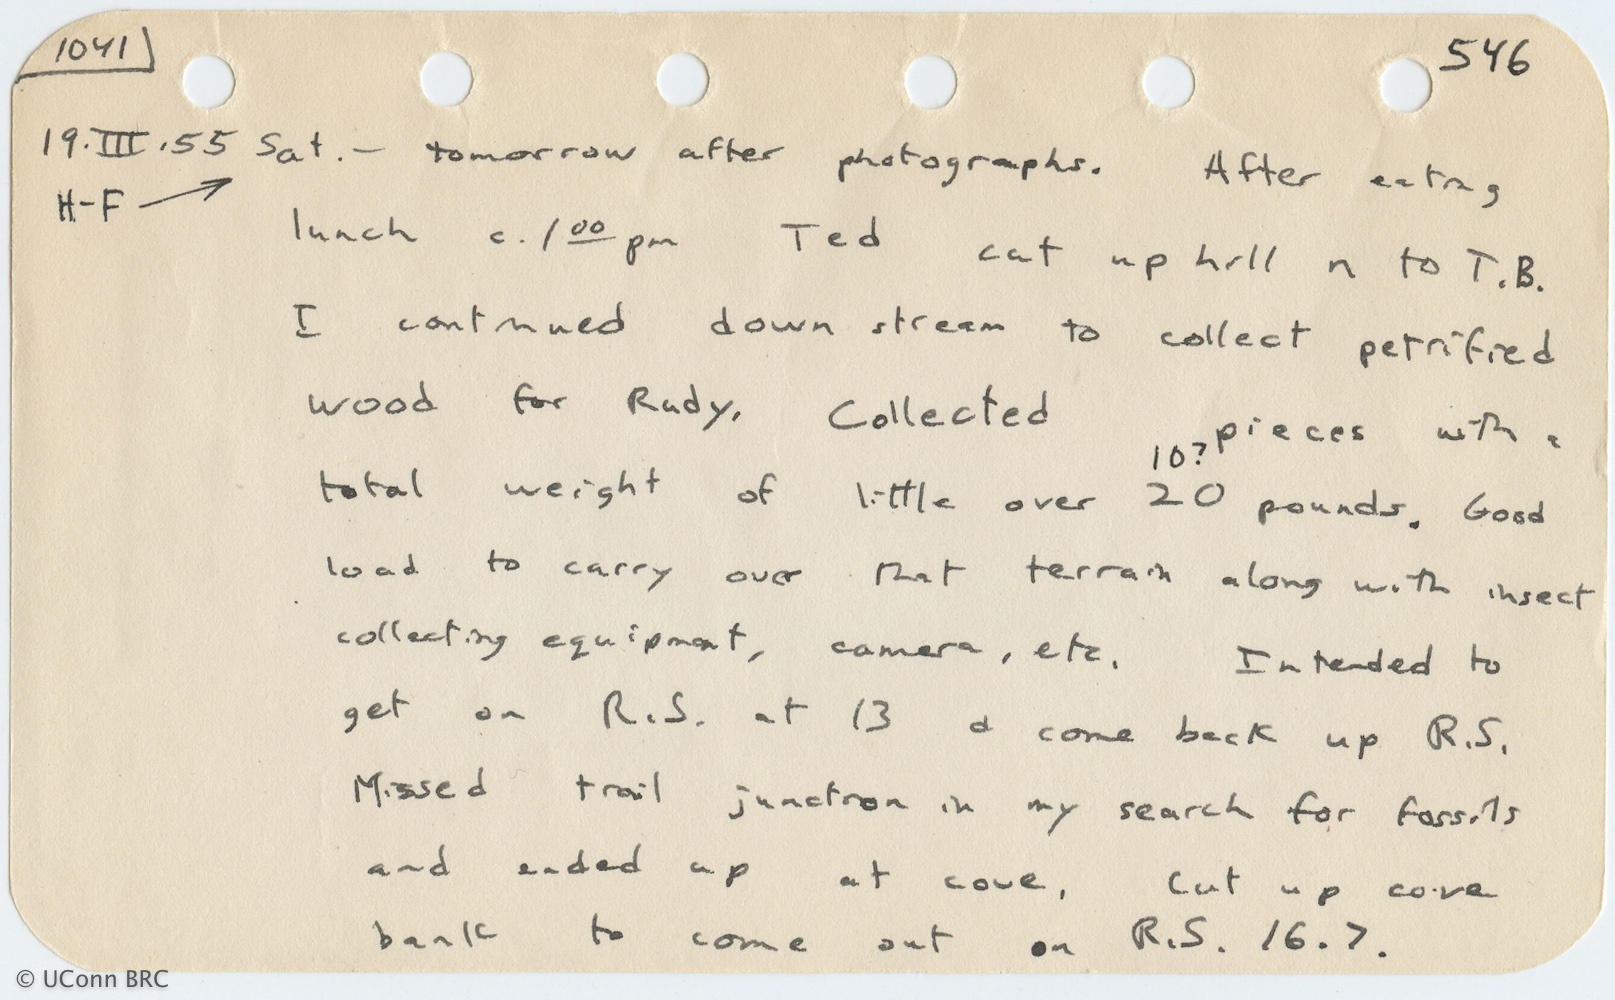 1041
546
19.III.55 Sat. — tomorrow after photographs. After eating
H-F → lunch c. 1 00 pm Ted cut up hill n to T.B.
I continued down stream to collect petrified
wood for Rudy. Collected pieces with a
10?
total weight of little over 20 pounds. Good
load to carry over that terrain along with insect
collecting equipment, camera, etc. Intended to
get on R.S. at 13 & come back up R.S.
Missed trail junction in my search for fossils
and ended up at cove. Cut up cove
bank to come out on R.S. 16.7.
© UConn BRC